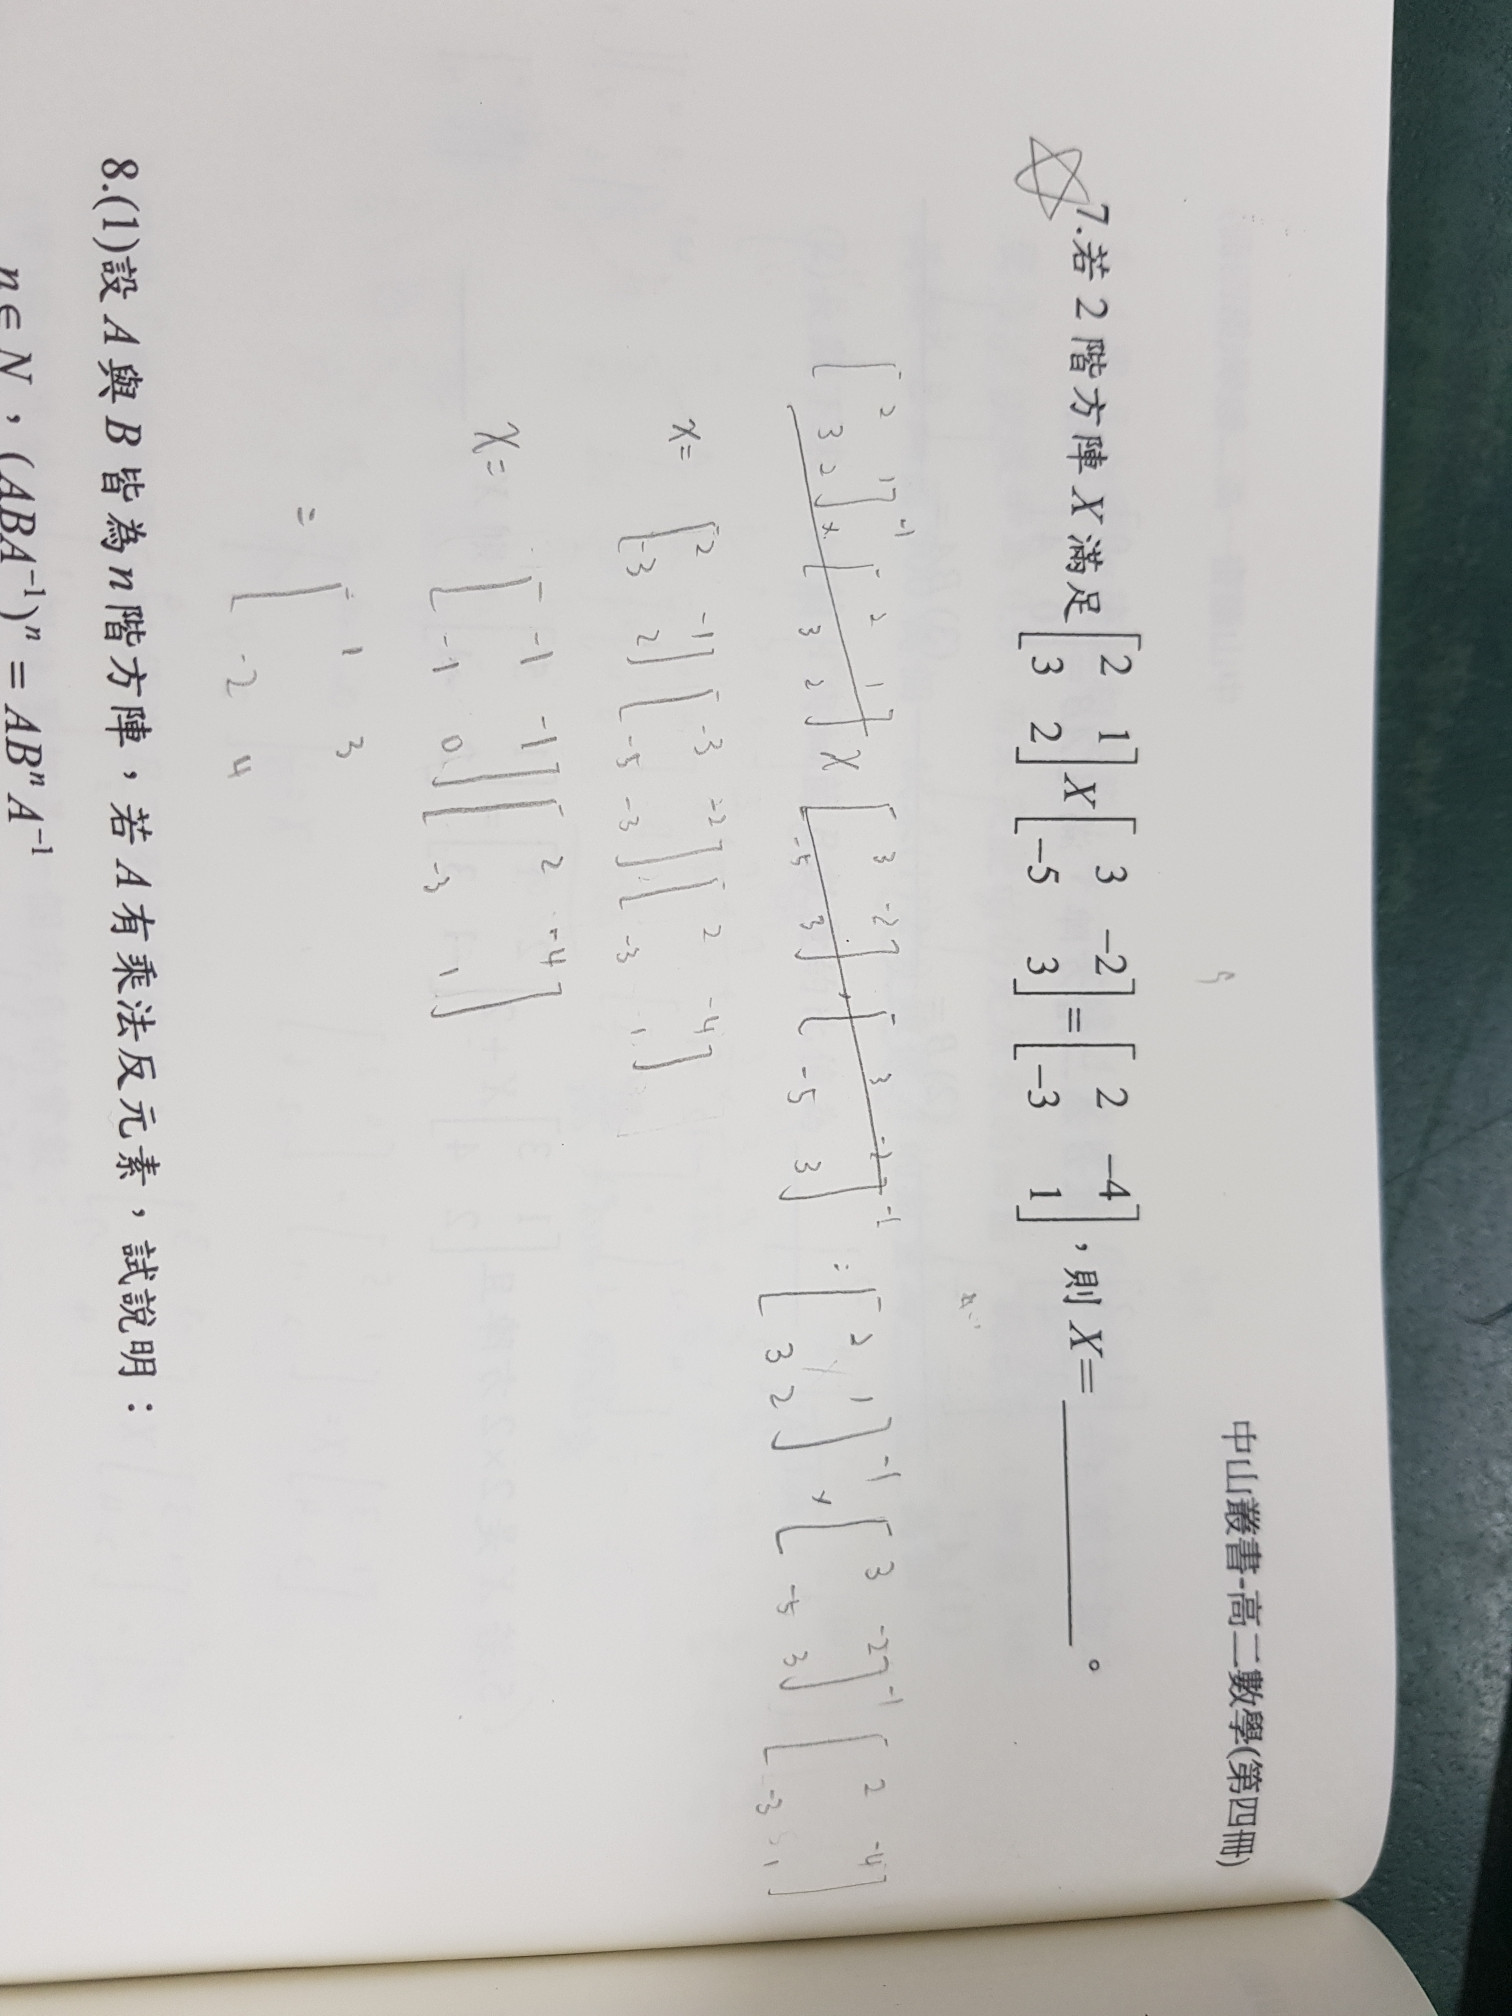 中山叢書-高二數學(第四冊)
7.若 2 階方陣 X 滿足 [2 1; 3 2] X [3 -2; -5 3] = [2 -4; -3 1],則 X= ________。
[2 1; 3 2]⁻¹ × [2 1; 3 2] X [3 -2; -5 3] [3 -2; -5 3]⁻¹ = [2 1; 3 2]⁻¹ × [3 -2; -5 3]⁻¹ [2 -4; -3 1]
X= [2 -1; -3 2] [-3 -2; -5 -3] [2 -4; -3 1]
X= [-1 -1; -1 0] [2 -4; -3 1]
= [1 3; -2 4]
8.(1)設 A 與 B 皆為 n 階方陣,若 A 有乘法反元素,試說明:
n∈N,(ABA⁻¹)ⁿ = ABⁿA⁻¹